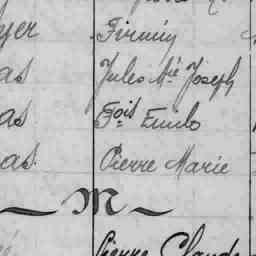 yer Firmin
as Jules Mie Joseph
as Fois Emile
as. Pierre Marie
— M —
Pierre Claude